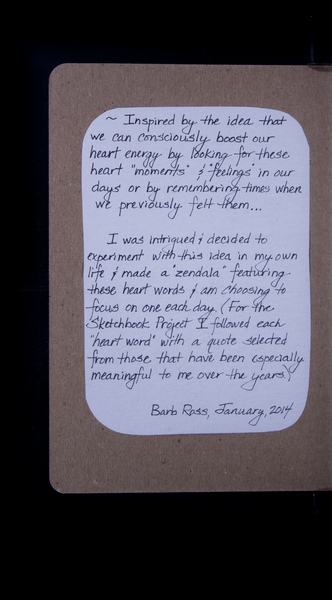 ~ Inspired by the idea that
we can consciously boost our
heart energy by looking for these
heart "moments" & "feelings" in our
days or by remembering times when
we previously felt them...
I was intrigued & decided to
experiment with this idea in my own
life & made a "zendala" featuring
these heart words & am choosing to
focus on one each day. (For the
Sketchbook Project I followed each
"heart word" with a quote selected
from those that have been especially
meaningful to me over the years.)
Barb Ross, January, 2014